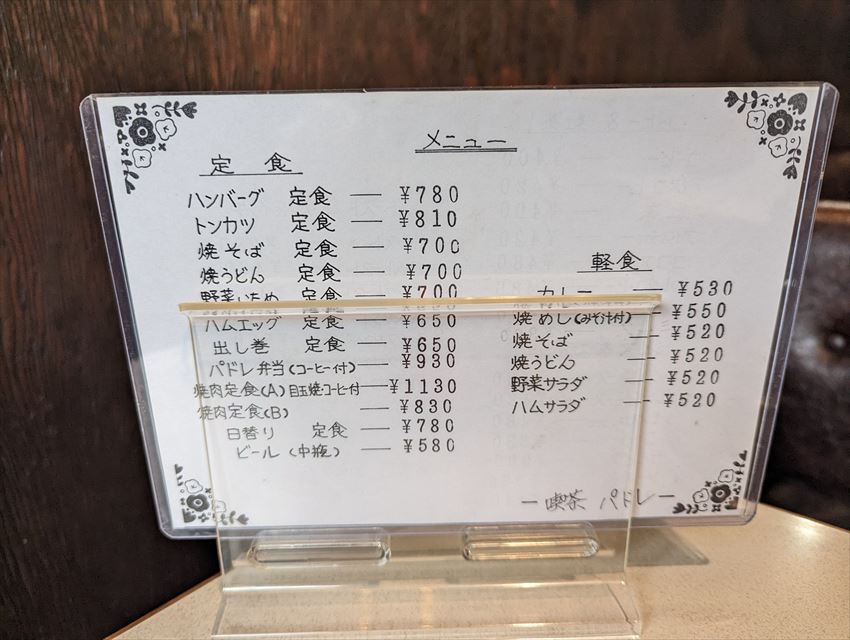 メニュー
定 食
ハンバーグ 定食 — ¥780
トンカツ 定食 — ¥810
焼そば 定食 — ¥700
焼うどん 定食 — ¥700
野菜いため 定食 — ¥700
ハムエッグ 定食 — ¥650
出し巻 定食 — ¥650
パドレ弁当(コーヒー付) — ¥930
焼肉定食(A)目玉焼コーヒー付 — ¥1130
焼肉定食(B) — ¥830
日替り 定食 — ¥780
ビール (中瓶) — ¥580
軽食
カレー — ¥530
焼めし(みそ汁付) — ¥550
焼そば — ¥520
焼うどん — ¥520
野菜サラダ — ¥520
ハムサラダ — ¥520
— 喫茶 パドレ —